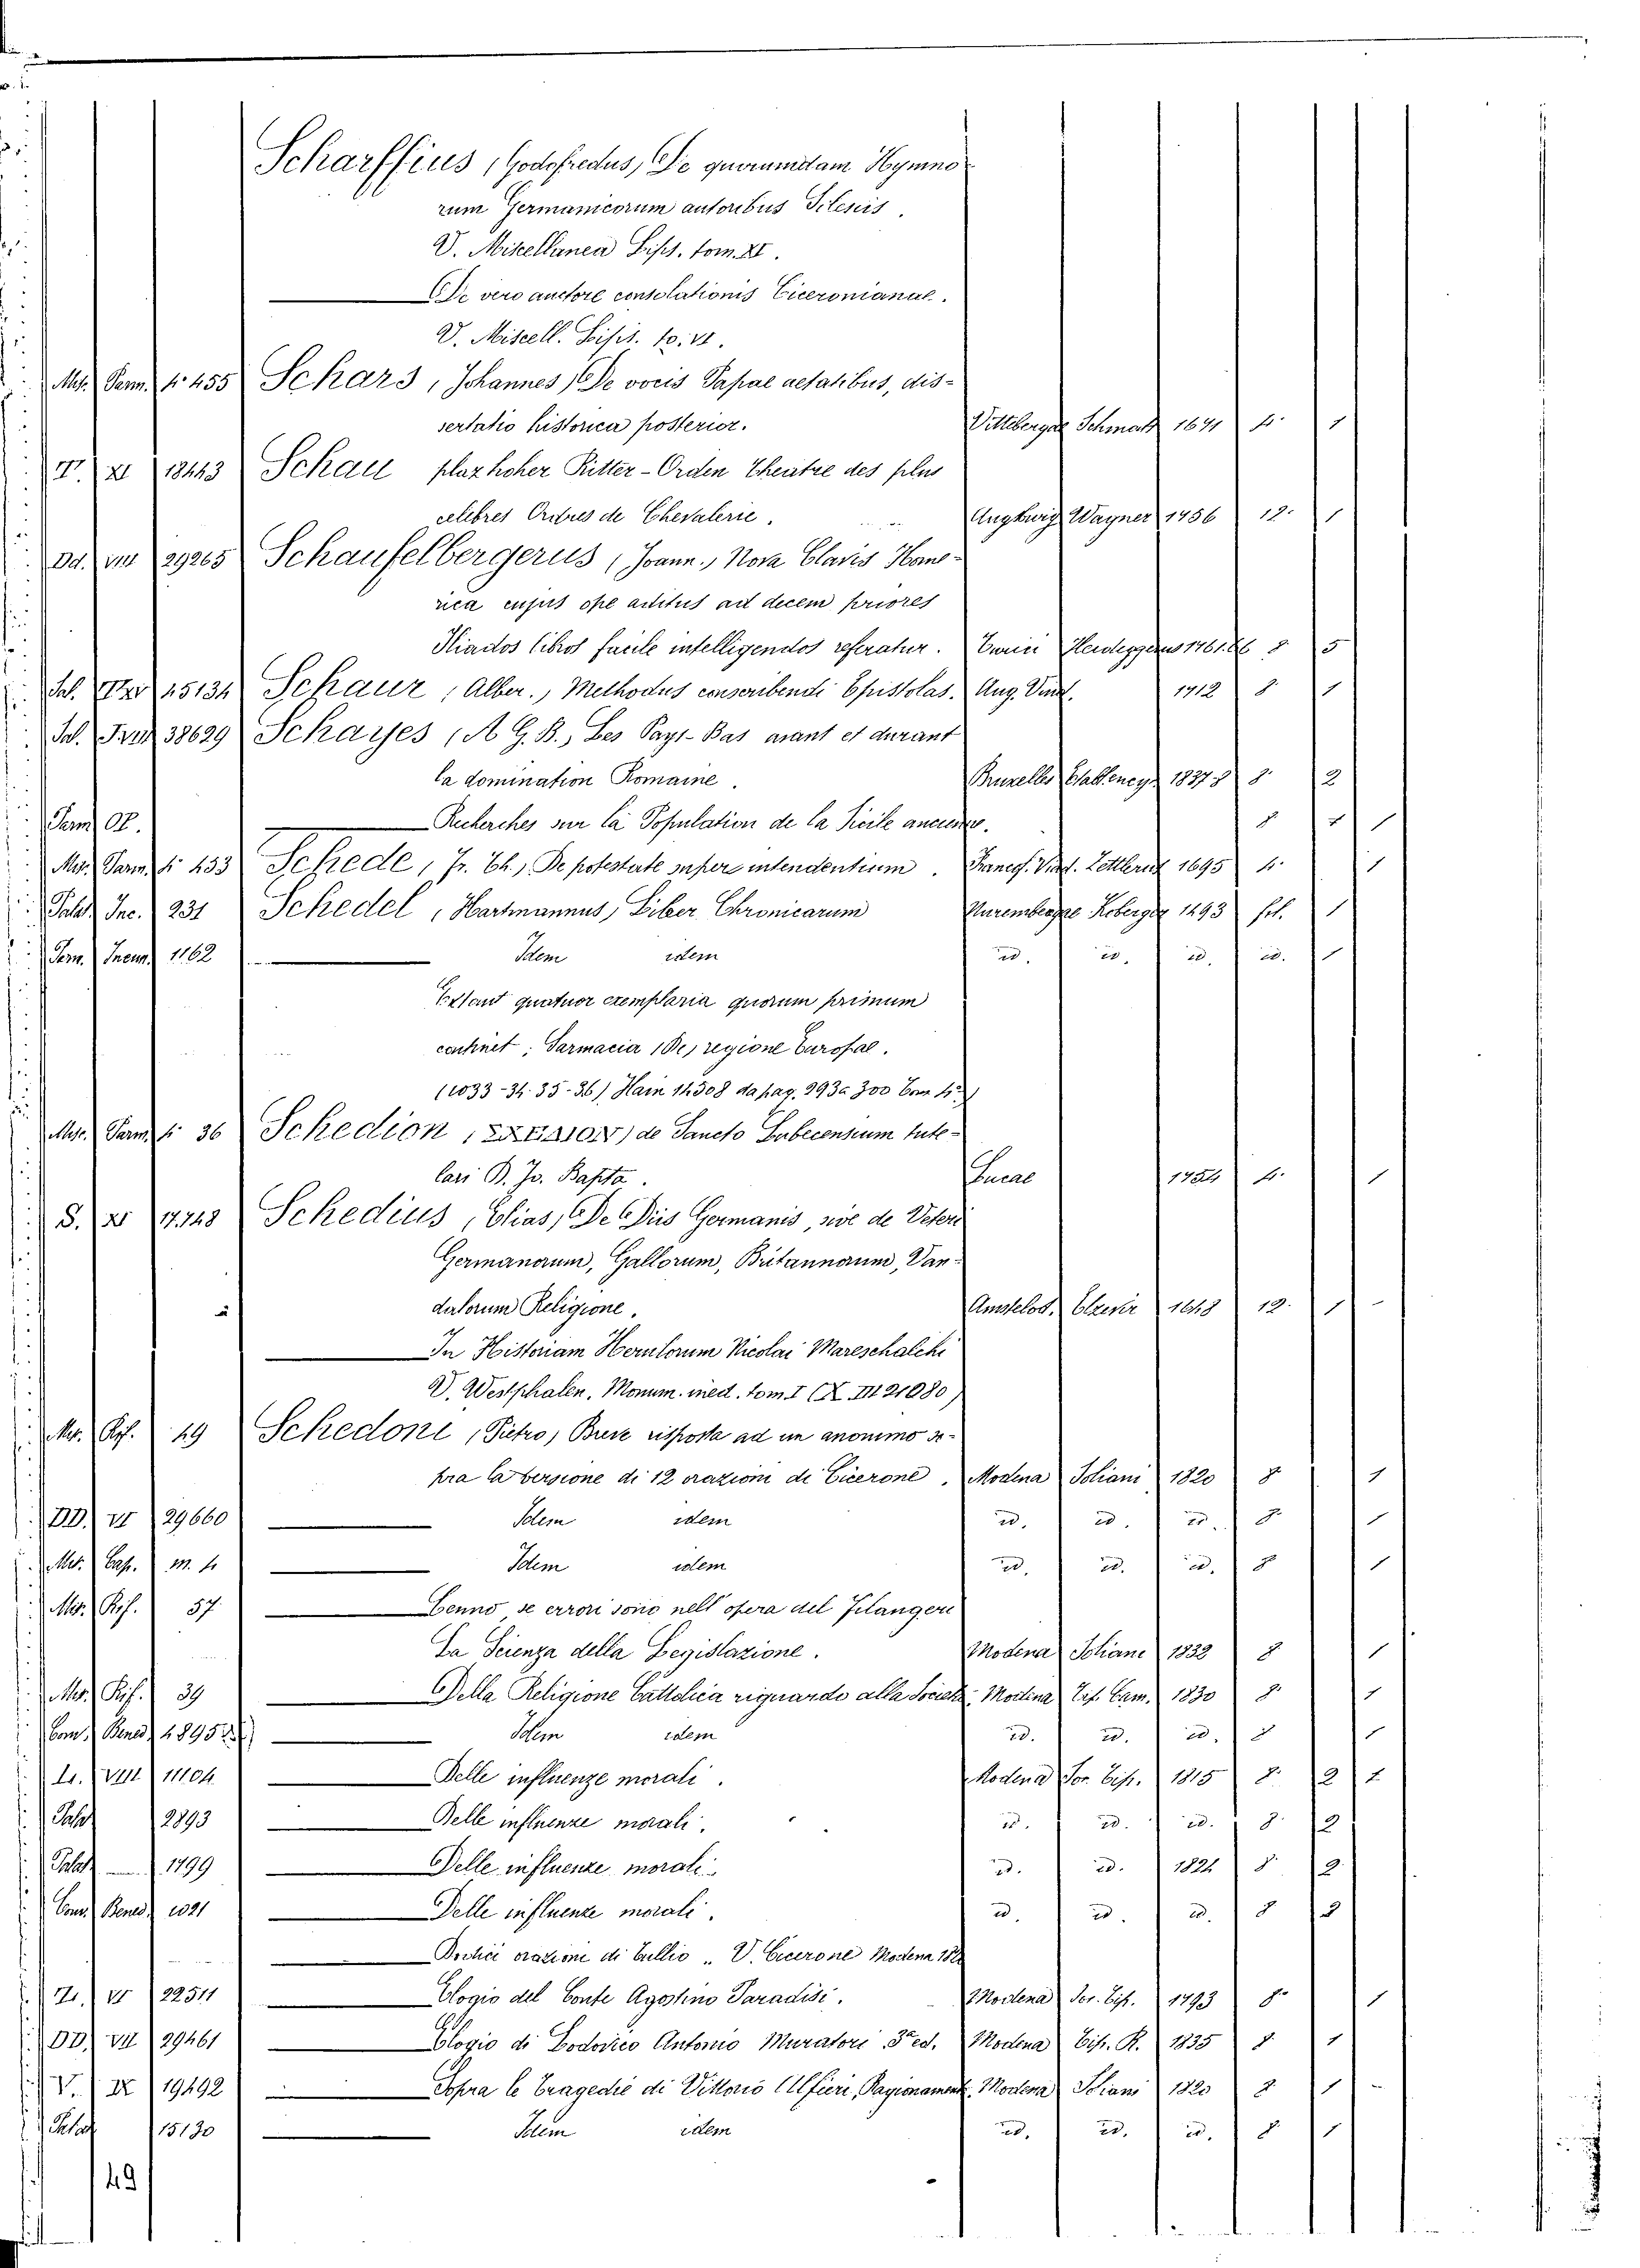 Scharffius, Godofredus, De quorumdam Hymno-
rum Germanicorum autoribus Silesiis.
V. Miscellanea Lips. tom. XI.
De vero auctore consolationis Ciceronianae.
V. Miscell. Lips. to. VI.
Mis. Parm. 4° 455 Schars, Johannes, De vocis Papae aetatibus, dis-
sertatio historica posterior. Vittbergae Schmatz 1671 4° 1
T. XI 18443 Schau plaz hoher Ritter-Orden Theatre des plus
celebres Ordres de Chevalerie. Augburg Wagner 1756 12. 1
Dd. VIII 29265 Schaufelbergerus, Joann., Nova Clavis Home-
rica cujus ope aditus ad decem priores
Iliados libros facile intelligendos referatur. Heideggerus 1761.66 8 5
45134 Schaur, Alber., Methodus conscribendi Epistolas. Aug. Vind. 1712 8 1
38629 Schayes, A. G. B., Les Pays-Bas avant et durant
la domination Romaine. Bruxelles 1837-8 8 2
Parm. Recherches sur la Population de la Sicile ancienne. 8 1 1
Mis. Parm. 4° 433 Schede, Fr. Eh., De potestate super intendentium. Francf. Zettleriz 1695 4° 1
Palat. Inc. 231 Schedel, Hartmannus, Liber Chronicarum Nurembergae Koberger 1493 fol. 1
Parm. Incun. 1162 Idem idem id. id. id. id. 1
Extant quatuor exemplaria quorum primum
continet; Sarmacia (De) regione Europae.
(1033-34. 35-36) Hain 14508 da pag. 293 a 300
Mis. Parm. 4° 36 Schedion, de Sancto Lubecensium tute-
lari B. Jo. Bapta. Lucae 1754 4. 1
S. XI 17.748 Schedius, Elias, De Diis Germanis, sive de Veteri
Germanorum, Gallorum, Britannorum, Van-
dalorum Religione. Amstelod. Elzevir 1648 12. 1
In Historiam Herulorum Nicolai Mareschalchi
V. Westphalen. Monum. ined. tom. I (X. III 21080)
Mis. Rif. 49 Schedoni, Pietro, Breve risposta ad un anonimo so-
pra la versione di 12 orazioni di Cicerone. Modena Soliani 1820 8 1
DD. VI 29660 Idem idem id. id. id. 8 1
Mis. Cap. m. 4 Idem idem id. id. id. 8 1
Mis. Rif. 57 Cenno, se errori sono nell opera del Filangeri
La Scienza della Legislazione. Modena Soliani 1832 8 1
Mis. Rif. 39 Della Religione Cattolica riguardo alla Società. Modena Tip. Cam. 1830 8 1
Com. Bened. 4895 Idem idem id. id. id. 8 1
VIII 11104 Delle influenze morali. Modena Soc. Tip. 1815 8. 2 1
Palat. 2893 Delle influenze morali. id. id. id. 8. 2
Palat. 1799 Delle influenze morali. id. id. 1824 8 2
Com. Bened. 1021 Delle influenze morali. id. id. id. 8 3
Dodici orazioni di Tullio. V. Cicerone Modena
VI 22511 Elogio del Conte Agostino Paradisi. Modena Soc. Tip. 1793 8 1
DD. VII 29461 Elogio di Lodovico Antonio Muratori 3a ed. Modena Tip. R. 1835 8 1
V. IX 19492 Sopra le Tragedie di Vittorio Alfieri, Ragionament. Modena Soliani 1820 8 1
Palat. 15130 Idem idem id. id. id. 8 1
49